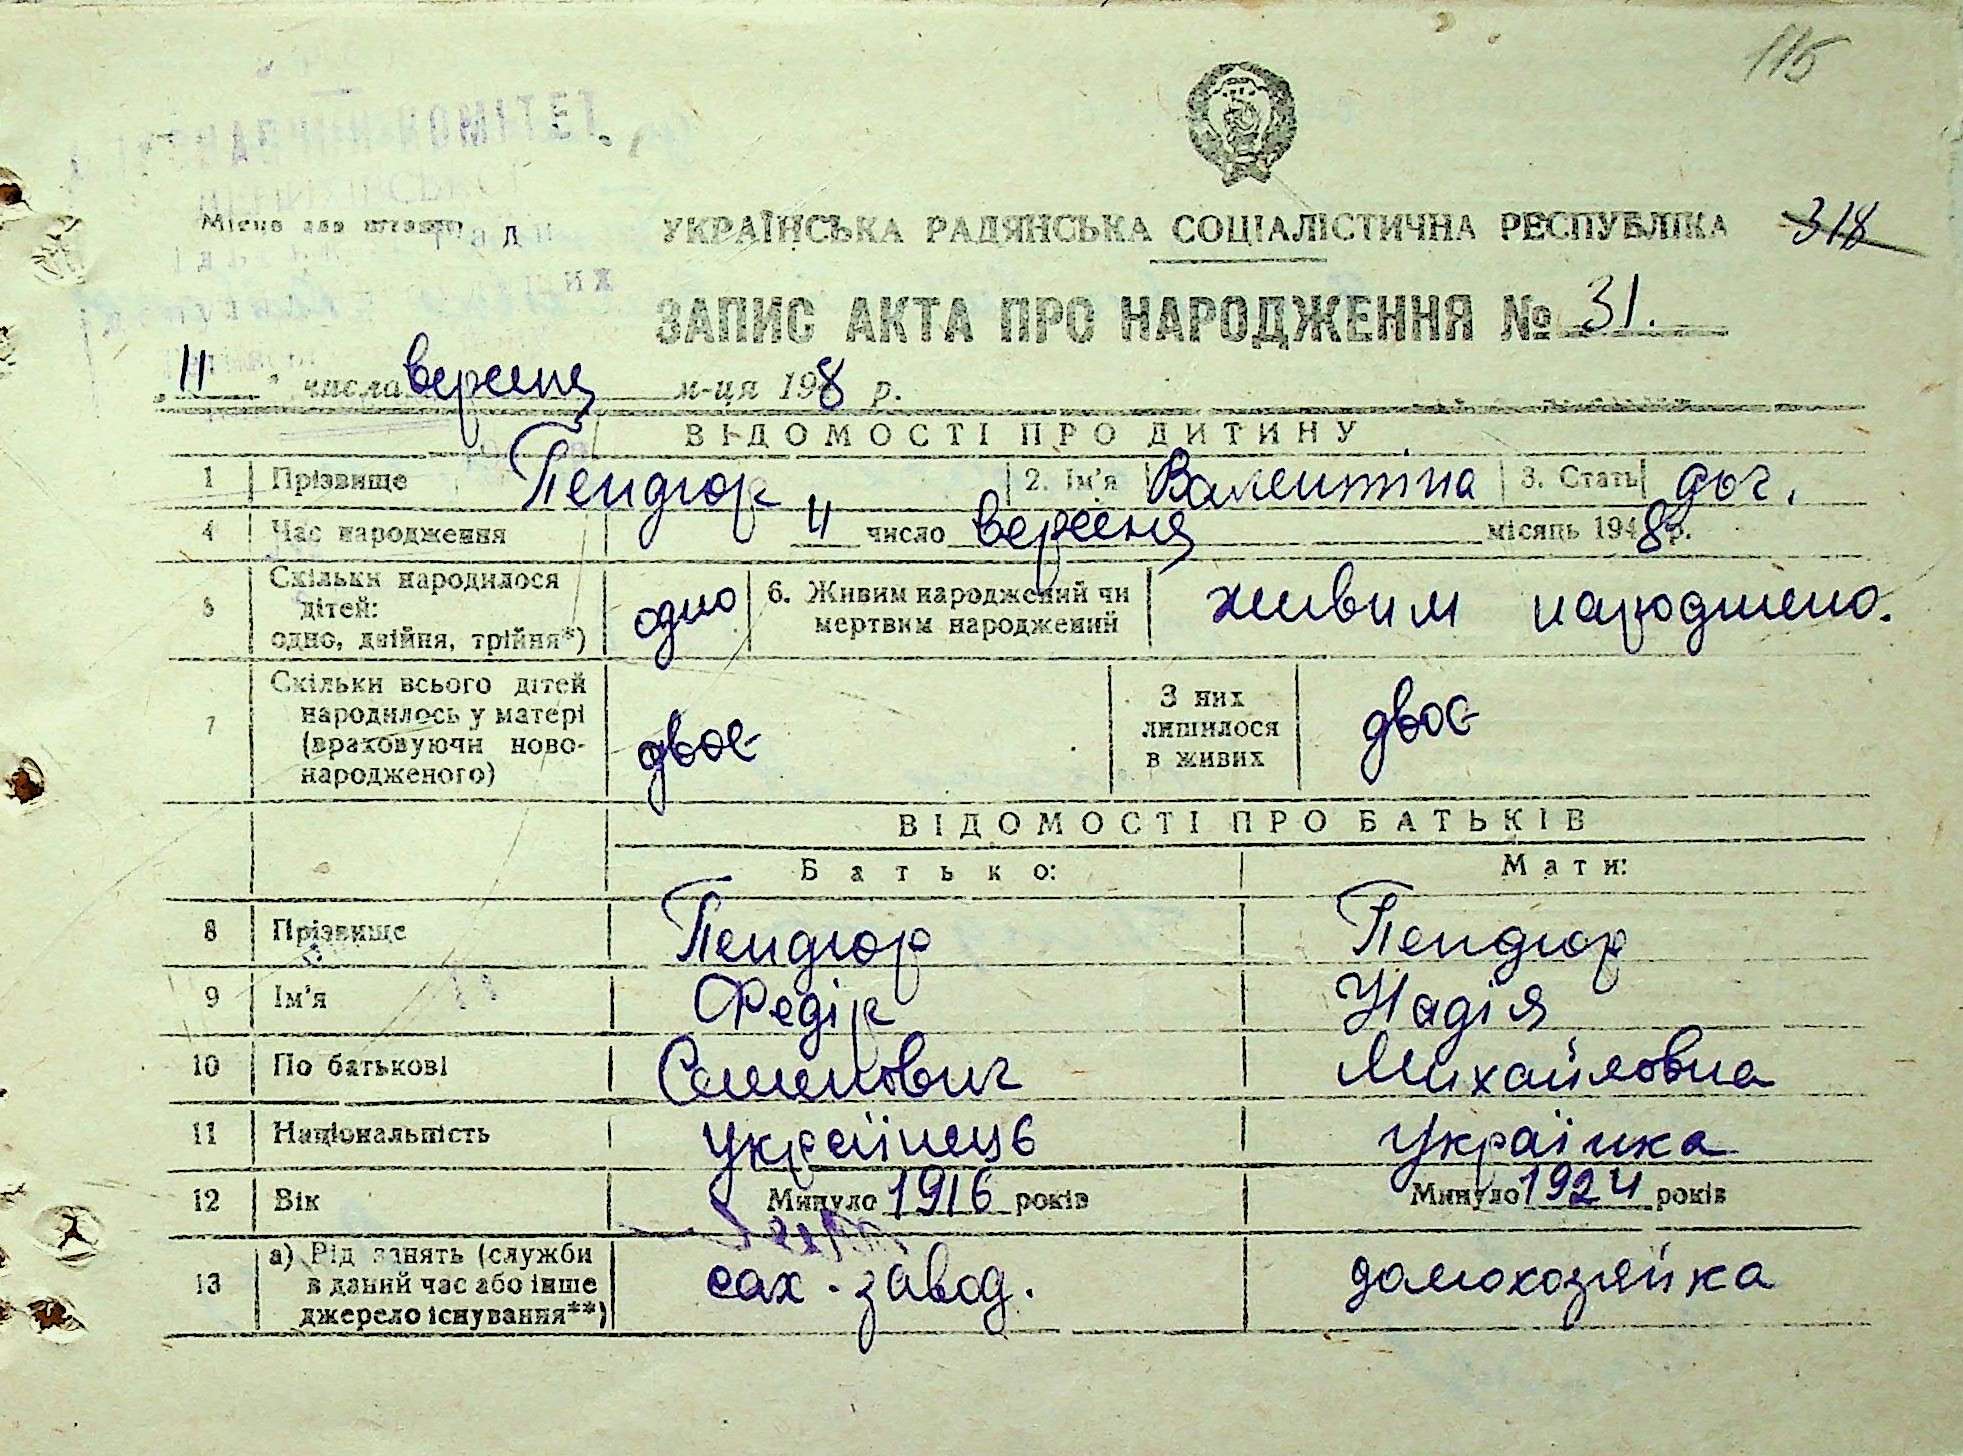 115
КОМІТЕТ
Місце для штампу
УКРАЇНСЬКА РАДЯНСЬКА СОЦІАЛІСТИЧНА РЕСПУБЛІКА 318
ЗАПИС АКТА ПРО НАРОДЖЕННЯ № 31.
„ 11 " числа вересня м-ця 198 р.
ВІДОМОСТІ ПРО ДИТИНУ
1 Прізвище Пендюр 2. Ім'я Валентіна 3. Стать доч.
4 Час народження 11 число вересня місяць 1948 р.
5 Скільки народилося дітей: одно, двійня, трійня*) одно 6. Живим народжений чи мертвим народжений живим народжено.
7 Скільки всього дітей народилось у матері (враховуючи новонародженого) двоє З них лишилося в живих двоє
ВІДОМОСТІ ПРО БАТЬКІВ
Батько: Мати:
8 Прізвище Пендюр Пендюр
9 Ім'я Федір Надія
10 По батькові Семенович Михайловна
11 Національність українець українка
12 Вік Минуло 1916 років Минуло 1924 років
13 а) Рід занять (служби в даний час або інше джерело існування**) сах. завод. домохозяйка